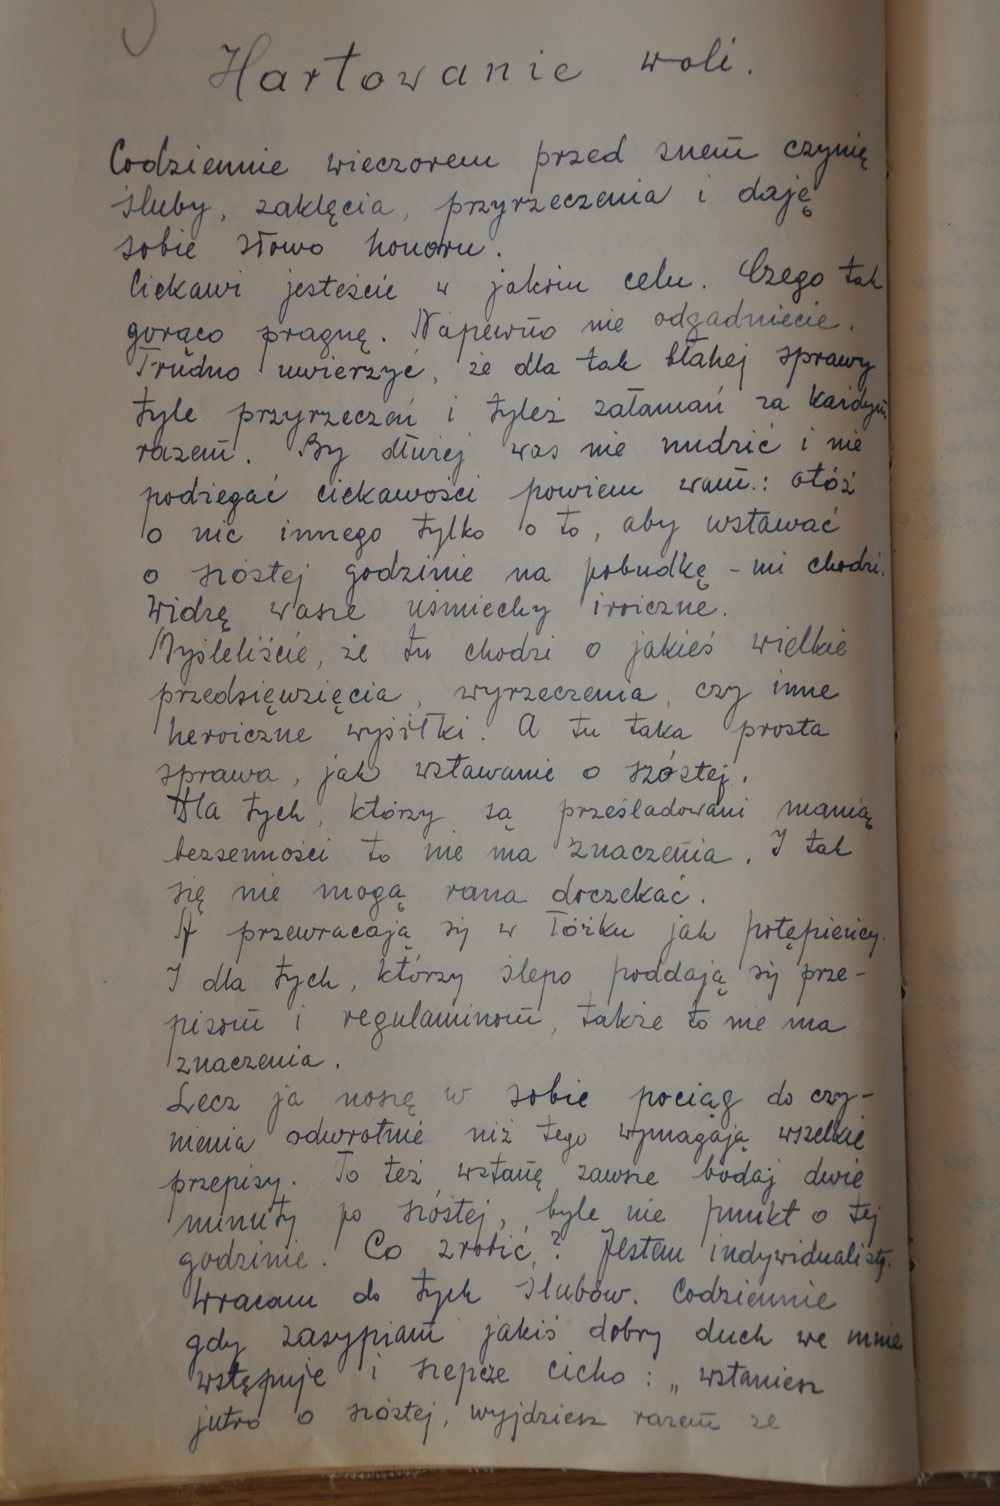 Hartowanie woli.
Codziennie wieczorem przed snem czynię
śluby, zaklęcia, przyrzeczenia i daję
sobie słowo honoru.
Ciekawi jesteście w jakim celu. Czego tak
gorąco pragnę. Napewno nie odgadniecie.
Trudno uwierzyć, że dla tak błahej sprawy
tyle przyrzeczeń i tyleż załamań za każdym
razem. By dłużej was nie nudzić i nie
podżegać ciekawości powiem wam: otóż
o nic innego tylko o to, aby wstawać
o szóstej godzinie na pobudkę - mi chodzi.
Widzę wasze uśmiechy iroiczne.
Myśleliście, że tu chodzi o jakieś wielkie
przedsięwzięcia, wyrzeczenia, czy inne
heroiczne wysiłki. A tu taka prosta
sprawa, jak wstawanie o szóstej.
Dla tych, którzy są prześladowani manią
bezsenności to nie ma znaczenia. I tak
się nie mogą rana doczekać.
A przewracają się w łóżku jak potępieńcy.
I dla tych, którzy ślepo poddają się prze-
pisom i regulaminom, także to nie ma
znaczenia.
Lecz ja noszę w sobie pociąg do czy-
nienia odwrotnie niż tego wymagają wszelkie
przepisy. To też wstanę zawsze bodaj dwie
minuty po szóstej, byle nie punkt o tej
godzinie. Co zrobić? Jestem indywidualistą.
Wracam do tych ślubów. Codziennie
gdy zasypiam jakiś dobry duch we mnie
wstępuje i szepcze cicho: „wstaniesz
jutro o szóstej, wyjdziesz razem ze